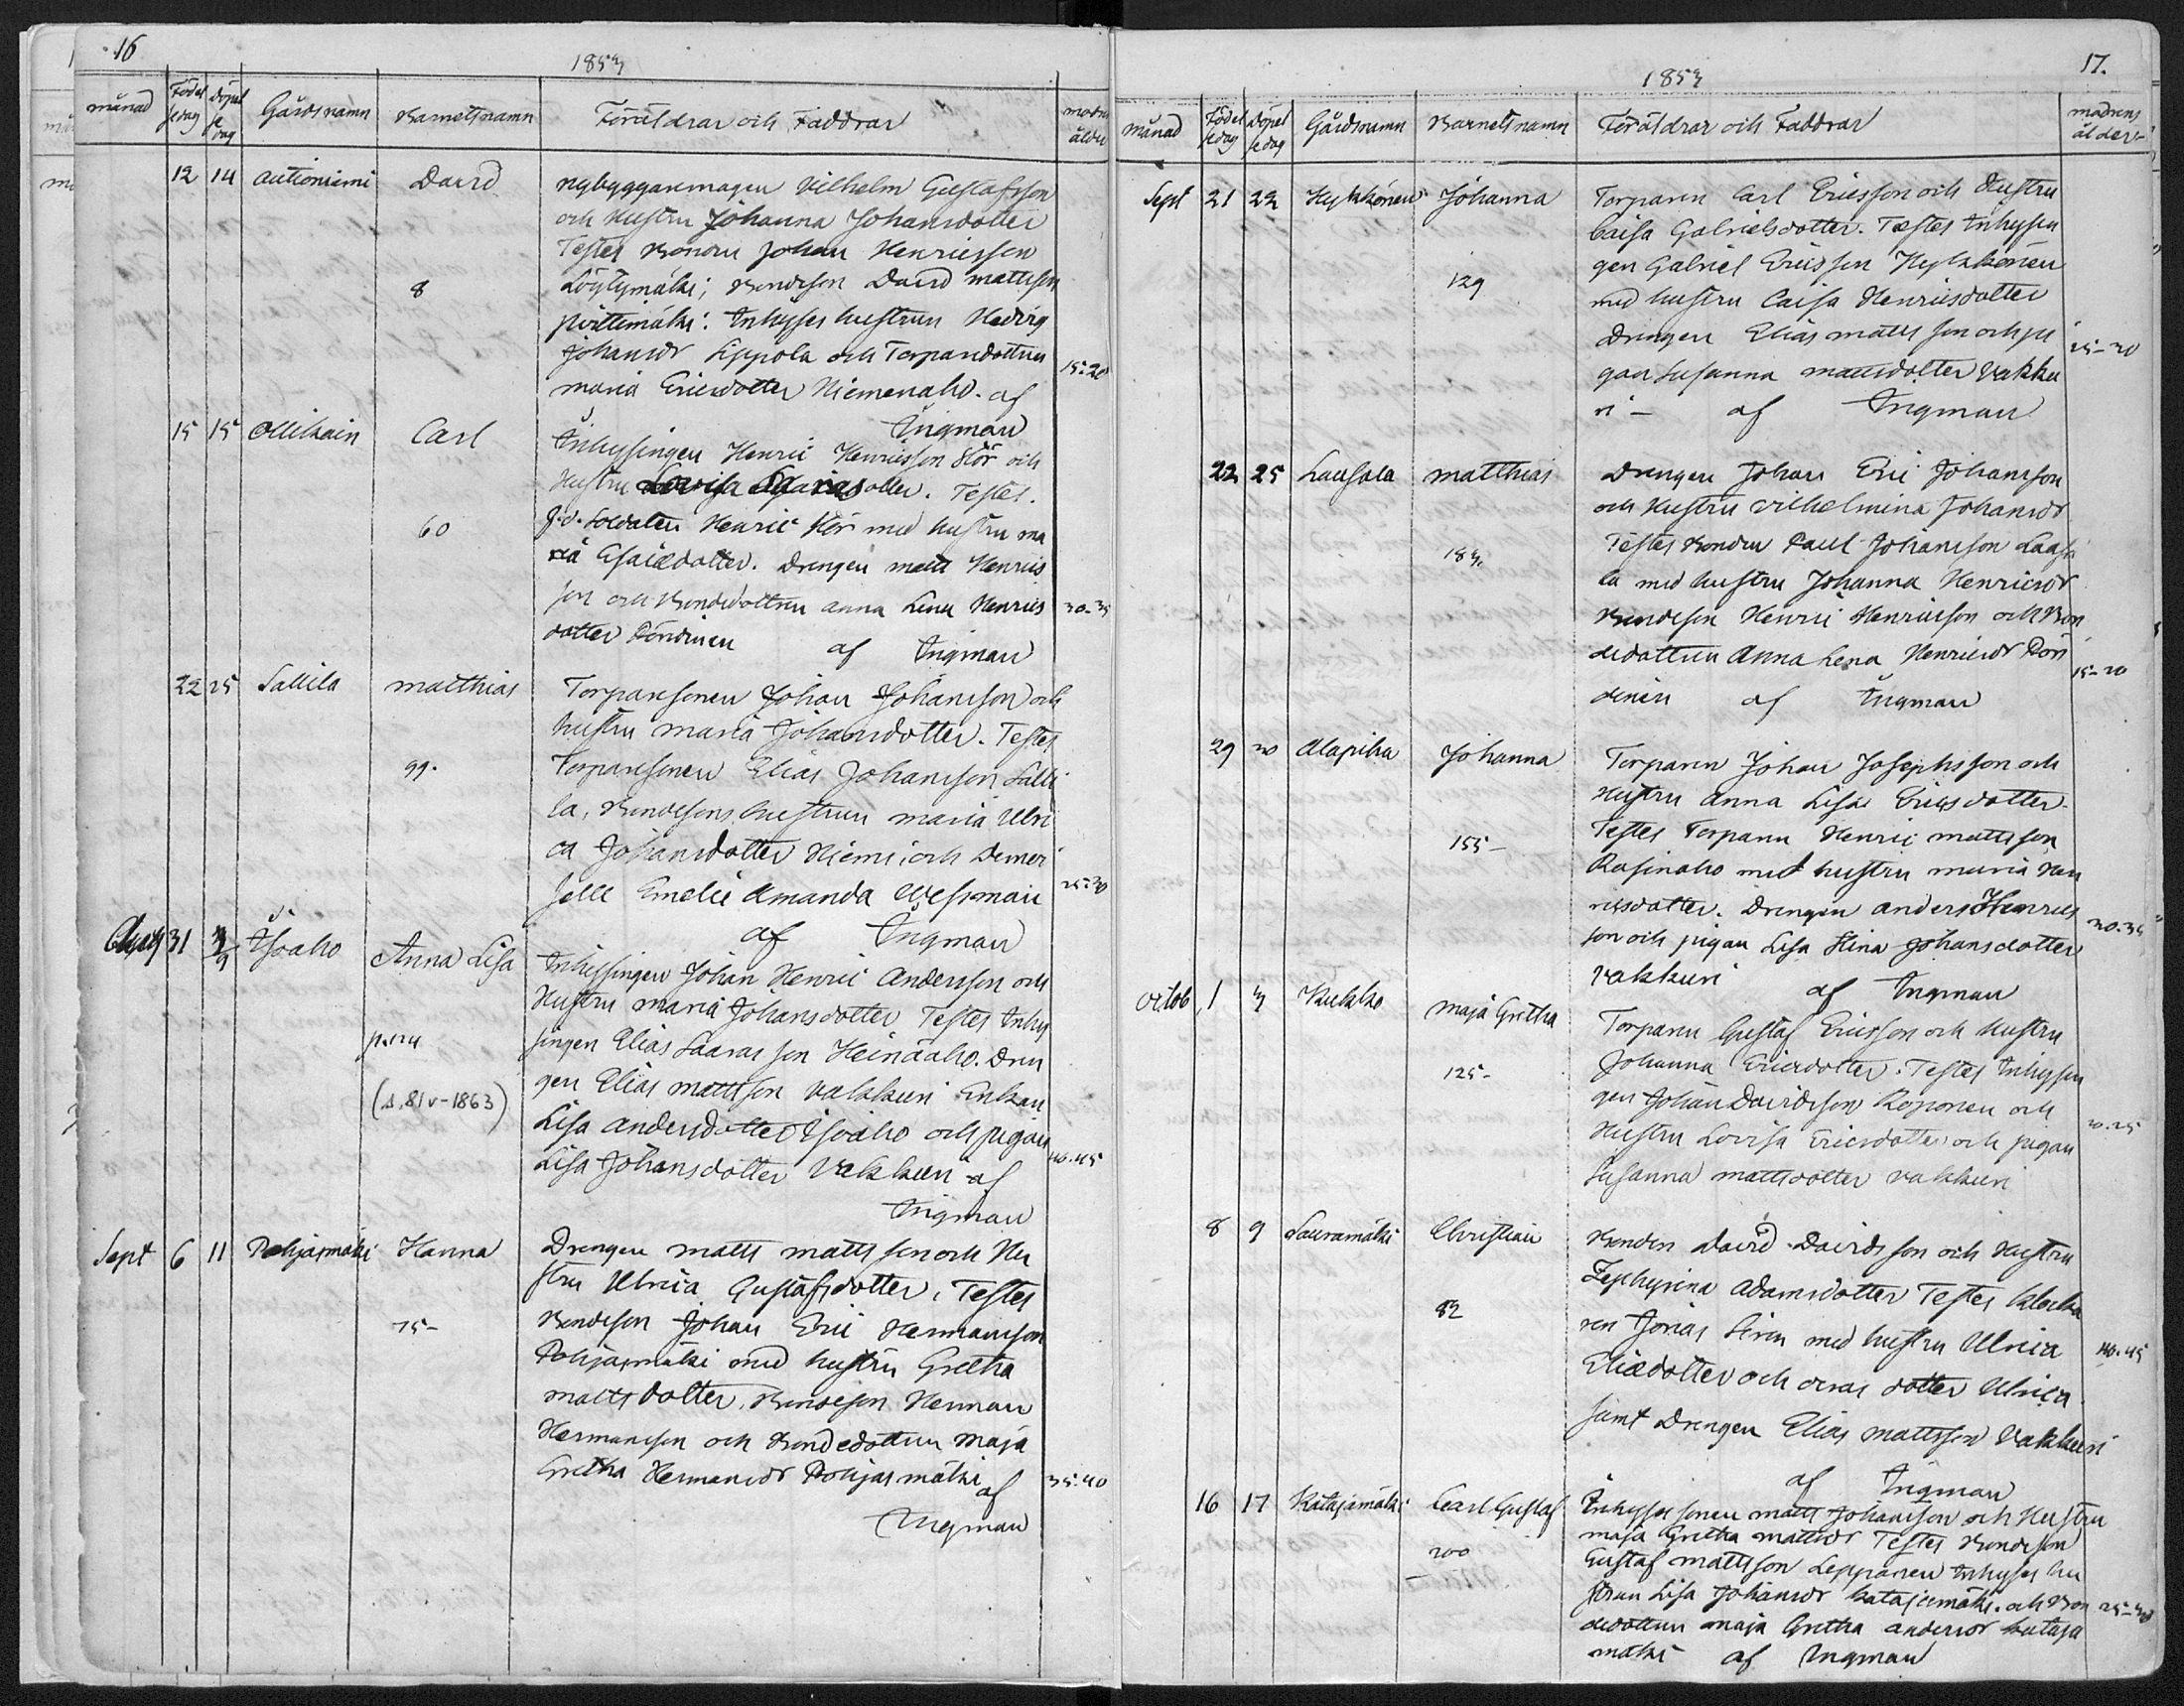 16
1853
månad Födelsedag Döpelsedag Gårdsnamn Barnetsnamn Föräldrar och Faddrar modrns ålder
12 14 Autioniemi David Nybyggaremågen Vilhelm Gustafsson
och Hustru Johanna Johansdotter
Testes Bonden Johan Henricsson
8 Löytymäki; Bondeson David Mattsson
Inhyses hustrun Hedvig
Johansdr Lippola och Torparedottren
15-20
Maria Ericsdotter Niemenaho. af
Ingman
15 15 Ollikain Carl
Inhysingen Henric Henricsson Hör och
Hustru Lovisa dotter. Testes.
60 f.d. Soldaten Henric Hör med hustru Ma
ria Esaiædotter. Drengen Matts Henrics
son och Bondedottren Anna Lena Henrics 30-35
dotter Pöndinen af Ingman
22 25 Sallila Matthias Torparesonen Johan Johansson och
hustru Maria Johansdotter. Testes
99. Torparesonen Elias Johansson Salli
la, Bondesons hustrun Maria Ulri
ca Johansdotter Niemi, och Demoi
selle Emelie Amanda Wessman
25-30
af Ingman
Aug 31 Isoaho Anna Lisa
Inhysingen Johan Henric Andersson och
Hustru Maria Johansdotter Testes Inhy
singen Elias Saarasson Heinäaho. Dren
gen Elias Mattsson Vakkuri Enkan
(s. 81 v - 1863)
Lisa Andersdotter Isoaho och pigan
Lisa Johansdotter Vakkuri af 40.45
Ingman
Sept 6 11 Pohjasmäki Hanna Drengen Matts Mattsson och Hu
stru Ulrica Gustafsdotter, Testes
75- Bondeson Johan Eric Hermansson
Pohjasmäki med hustru Gretha
Mattsdotter, Bondeson Herman
Hermansson och Bondedottren Maja
Gretha Hermansdr Pohjasmäki af 35-40
Ingman
17.
1853
månad Födelsedag Döpelsedag Gårdsnamn Barnetsnamn Föräldrar och Faddrar modrens ålder-
Sept 21 22 Hykkönen Johanna Torparen Carl Ericsson och Hustru
Caisa Gabrielsdotter. Testes Inhysin
129 gen Gabriel Ericsson Hykkönen
med hustru Caisa Henricsdotter
Drengen Elias Mattsson och pi
25-30
gan Susanna Mattsdotter Vakku
ri - af Ingman
22 25 Lausala Matthias Drengen Johan Eric Johansson
och Hustru Vilhelmina Johansdr
183. Testes Bonden Paul Johansson Lausa
la med hustru Johanna Henricsdr
Bondeson Henric Henricsson och Bon
dedottren Anna Lena Henricsdr Pön
15-20
dinen af Ingman
29 30 Alapiha Johanna Torparen Johan Josephsson och
Hustru Anna Lisa Ericsdotter.
155- Testes Torparen Henric Mattsson
Rasinaho med hustru Maria Hen
ricsdotter. Drengen Anders Henrics 30.35
son och pigan Lisa Stina Johansdotter
Vakkuri af Ingman
Octob 1 3 Kukko Maja Gretha
Torparen Gustaf Ericsson och hustru
125- Johanna Ericsdotter. Testes Inhysin
gen Johan Davidsson Koponen och 20.25
Hustru Lovisa Ericsdotter och pigan
Susanna Mattsdotter Vakkuri
8 9 Sauramäki Christian Bonden David Davidsson och Hustru
82 Zephyrina Adamsdotter Testes Klocka
ren Jonas Siren med hustru Ulrica 40.45
Eliædotter och deras dotter Ulrica
samt Drengen Elias Mattsson Vakkuri
af Ingman
16 17 Katajamäki Carl Gustaf Inhyses sonen Matts Johansson och Hustru
Maja Gretha Mattsdr Testes Bondeson
200 Gustaf Mattsson Leppänen Inhyses hu
strun Lisa Johansdr Katajamäki. och Bon 25-30
dedottren Maja Gretha Andersdr Kataja
mäki af Ingman